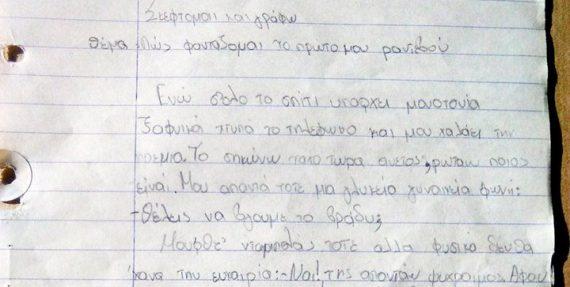 Σκέφτομαι και γράφω
θέμα: Πώς φανταζομαι το πρωτο μου ραντεβού
Ενώ σ' όλο το σπίτι υπαρχει μουστουλια
Ξαφνικά χτυπα το τηλεφωνο και μου χαλάει την
ηρεμια. Το σηκώνω τωρα ρωταω ποιος
είναι. Μου απαντά τοτε μια γλυκεια γυναικεία φωνή:
-Θέλεις να βγουμε το βράδυ;
Μουρθε τοτε αλλα φυσικά δεν θα
έχανα την ευκαιρία:-Ναι! της απανταω ψυχραιμος. Αφου